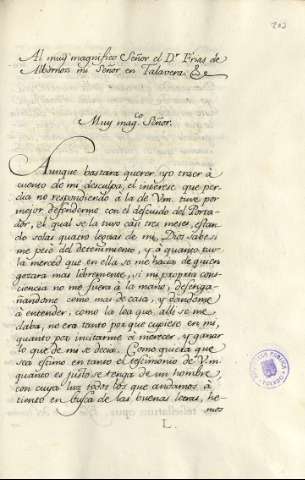 202
Al muy magnifico Señor el D.r Frias de
Albornoz mi Señor en Talavera. &c
Muy mag.co Señor.
Aunque bastara querer yo traer à
cuento de mi desculpa, el interese que per-
dia no respondiendo à la de Vm. tuve por
mejor defenderme con el descuido del Porta-
dor, el qual se la tuvo cassi tres meses, estan-
do solas quatro leguas de mi. Dios sabe si
me pesó del detenimiento, y à quanto tuve
la merced que en ella se me hacia, de quien
gozara mas libremente, si mi propria cons-
ciencia no me fuera à la mano, desenga-
ñandome como mas de casa, y dandome
à entender, como la loa que alli se me
daba, no era tanto por que cupiese en mi,
quanto por invitarme à merecer, y ganar
lo que de mi se decia. Como quiera que
sea estimo en tanto el testimonio de Vm.
quanto es justo se tenga de un hombre,
con cuya luz todos los que andamos à
tiento en busca de las buenas letras, he-
mos
L.